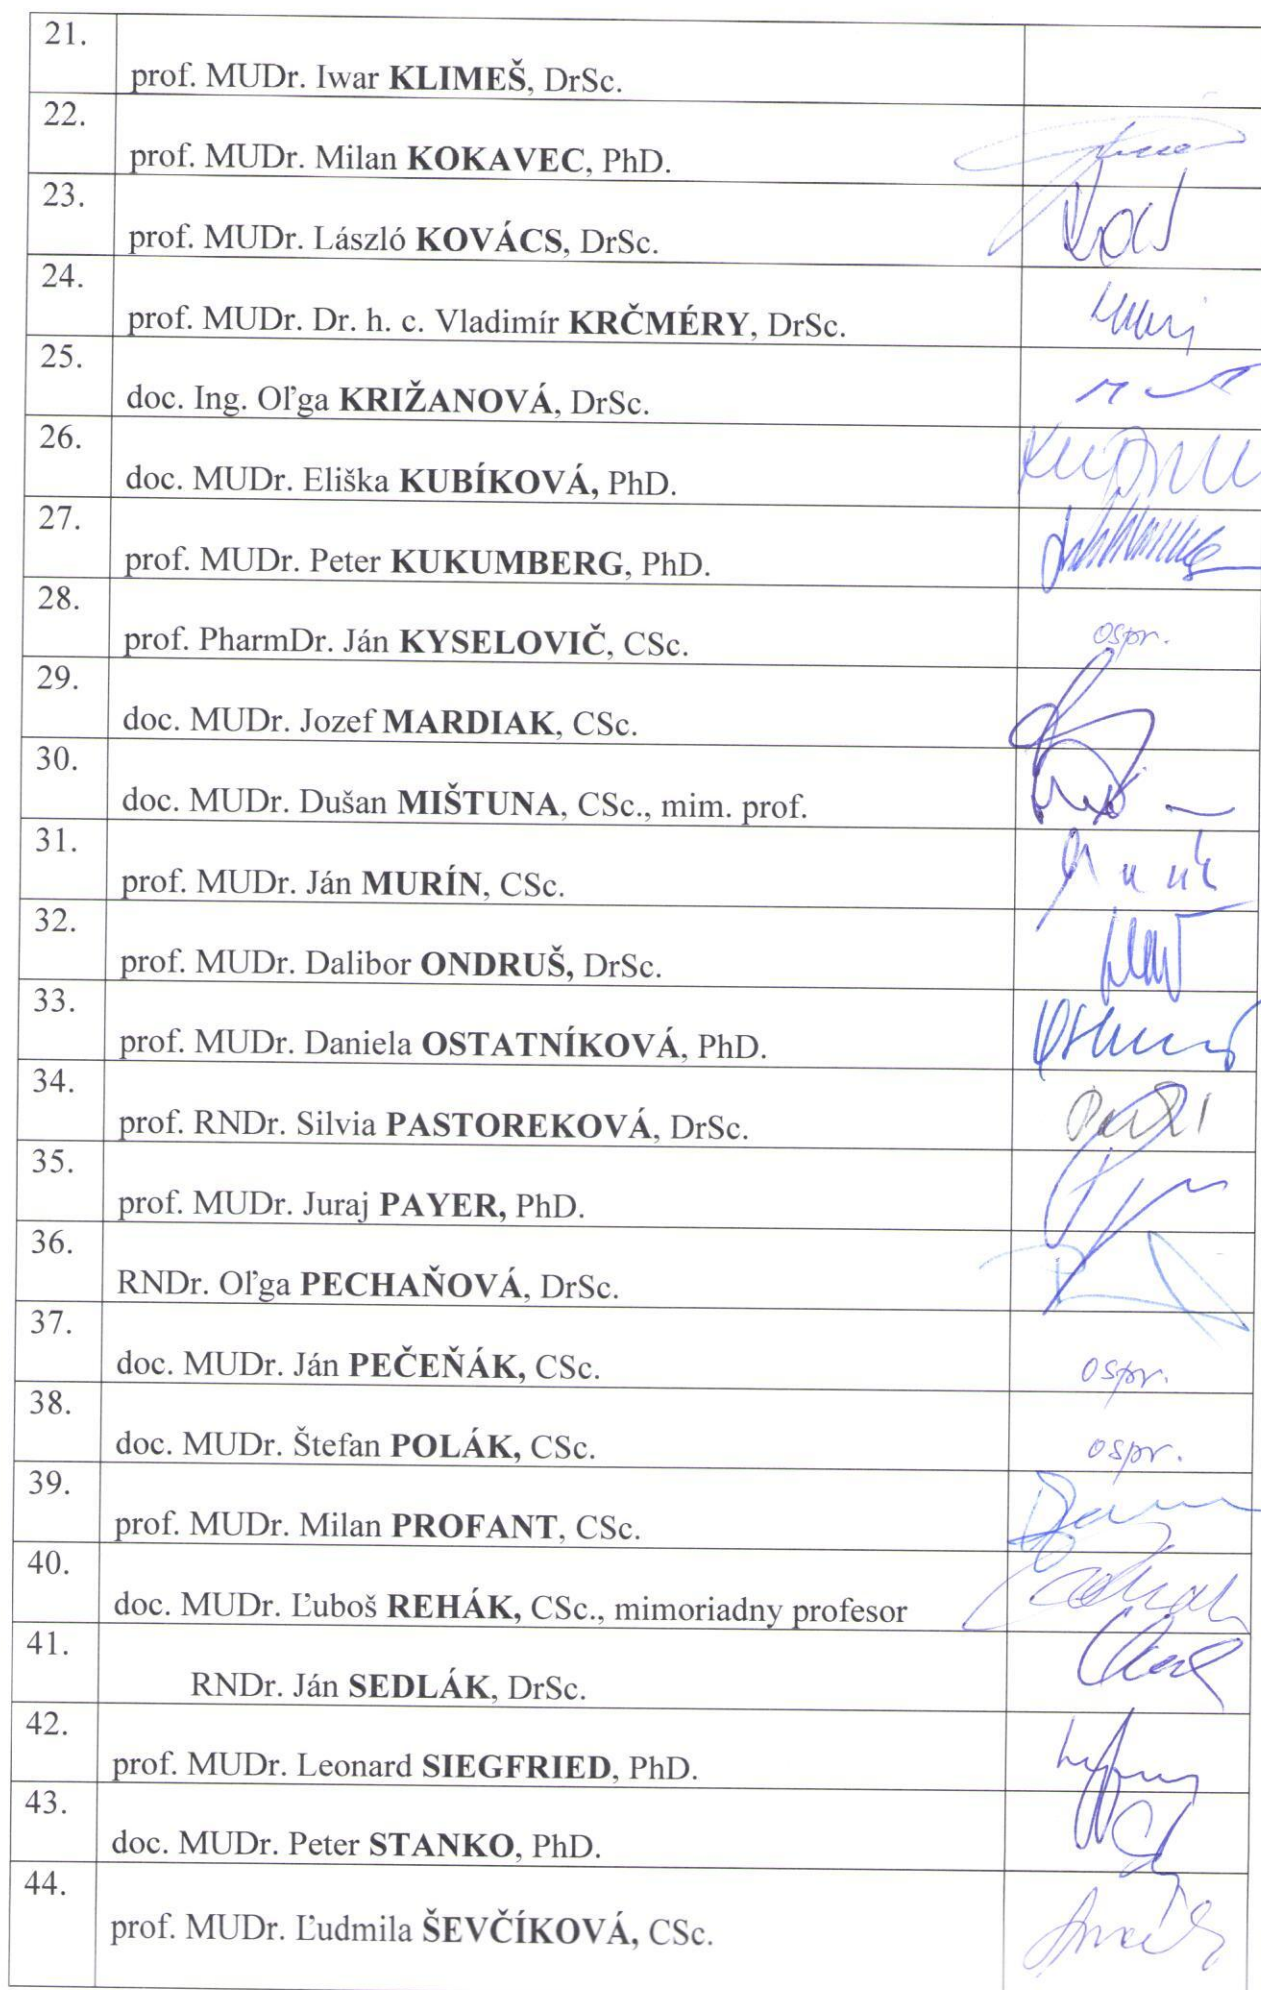 21.
prof. MUDr. Iwar KLIMEŠ, DrSc.
22.
prof. MUDr. Milan KOKAVEC, PhD.
23.
prof. MUDr. László KOVÁCS, DrSc.
24.
prof. MUDr. Dr. h. c. Vladimír KRČMÉRY, DrSc.
25.
doc. Ing. Oľga KRIŽANOVÁ, DrSc.
26.
doc. MUDr. Eliška KUBÍKOVÁ, PhD.
27.
prof. MUDr. Peter KUKUMBERG, PhD.
28.
prof. PharmDr. Ján KYSELOVIČ, CSc. ospr.
29.
doc. MUDr. Jozef MARDIAK, CSc.
30.
doc. MUDr. Dušan MIŠTUNA, CSc., mim. prof.
31.
prof. MUDr. Ján MURÍN, CSc.
32.
prof. MUDr. Dalibor ONDRUŠ, DrSc.
33.
prof. MUDr. Daniela OSTATNÍKOVÁ, PhD.
34.
prof. RNDr. Silvia PASTOREKOVÁ, DrSc.
35.
prof. MUDr. Juraj PAYER, PhD.
36.
RNDr. Oľga PECHAŇOVÁ, DrSc.
37.
doc. MUDr. Ján PEČEŇÁK, CSc. ospr.
38.
doc. MUDr. Štefan POLÁK, CSc. ospr.
39.
prof. MUDr. Milan PROFANT, CSc.
40.
doc. MUDr. Ľuboš REHÁK, CSc., mimoriadny profesor
41.
RNDr. Ján SEDLÁK, DrSc.
42.
prof. MUDr. Leonard SIEGFRIED, PhD.
43.
doc. MUDr. Peter STANKO, PhD.
44.
prof. MUDr. Ľudmila ŠEVČÍKOVÁ, CSc.